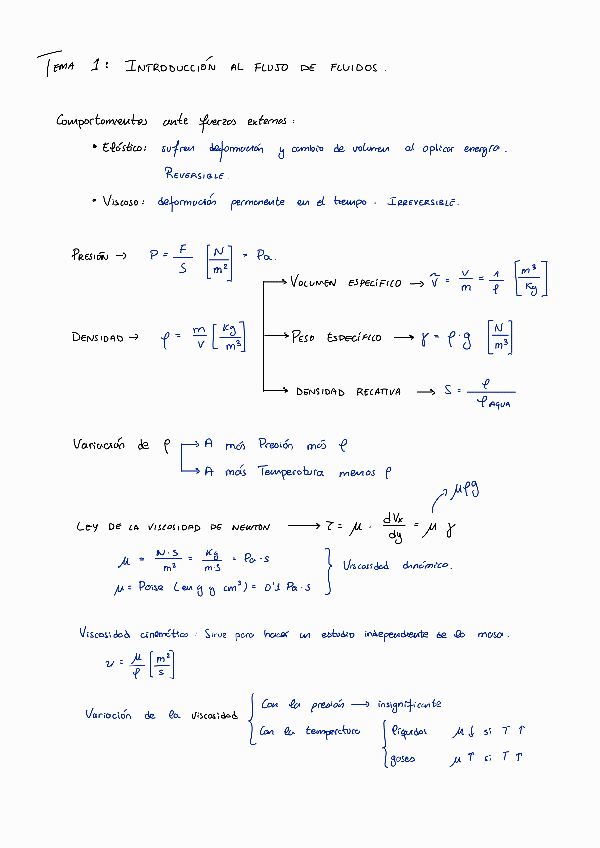 TEMA 1: INTRODUCCIÓN AL FLUJO DE FLUIDOS.
Comportamientos ante fuerzas externas:
• Elástico: sufren deformación y cambio de volumen al aplicar energía.
REVERSIBLE.
• Viscoso: deformación permanente en el tiempo. IRREVERSIBLE.
PRESIÓN → P = F/S [N/m²] = Pa.
→ VOLUMEN ESPECÍFICO → ṽ = V/m = 1/ρ [m³/Kg]
DENSIDAD → ρ = m/V [Kg/m³] → PESO ESPECÍFICO → γ = ρ·g [N/m³]
→ DENSIDAD RELATIVA → S = ρ/ρ AGUA
Variación de ρ → A más Presión más ρ
→ A más Temperatura menos ρ
μρg
LEY DE LA VISCOSIDAD DE NEWTON → τ = μ · dVx/dy = μ γ
μ = N·s/m² = Kg/m·s = Pa·s
Viscosidad dinámica.
μ = Poise (en g y cm³) = 0'1 Pa·s
Viscosidad cinemática: Sirve para hacer un estudio independiente de la masa.
ν = μ/ρ [m²/s]
Variación de la viscosidad { Con la presión → insignificante
Con la temperatura { líquidos μ ↓ si T ↑
gases μ ↑ si T ↑